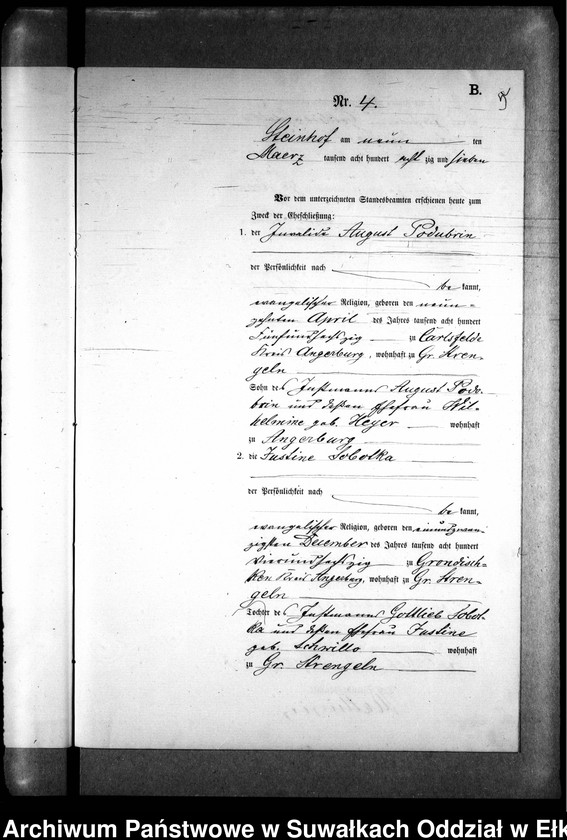 B.
Nr. 4.
Steinhof am neun ten
Maerz tausend acht hundert acht zig und sieben
Vor dem unterzeichneten Standesbeamten erschienen heute zum
Zweck der Eheschließung:
1. der Invalide August Podubrin
der Persönlichkeit nach
be kannt,
evangelischer Religion, geboren den neun-
zehnten April des Jahres tausend acht hundert
Fünfundsechszig zu Carlsfelde
Kreis Angerburg, wohnhaft zu Gr. Stren-
geln
Sohn des Instmanns August Podu-
brin und dessen Ehefrau Wil-
helmine geb. Heyer wohnhaft
zu Angerburg
2. die Justine Sobotka
der Persönlichkeit nach
be kannt,
evangelischer Religion, geboren den einundzwan-
zigsten December des Jahres tausend acht hundert
Vierundsechszig zu Grondisch-
ken Kreis Angerburg, wohnhaft zu Gr. Stren-
geln
Tochter des Instmanns Gottlieb Sobot-
ka und dessen Ehefrau Justine
geb. Schrillo wohnhaft
zu Gr. Strengeln
Archiwum Państwowe w Suwałkach Oddział w Ełk